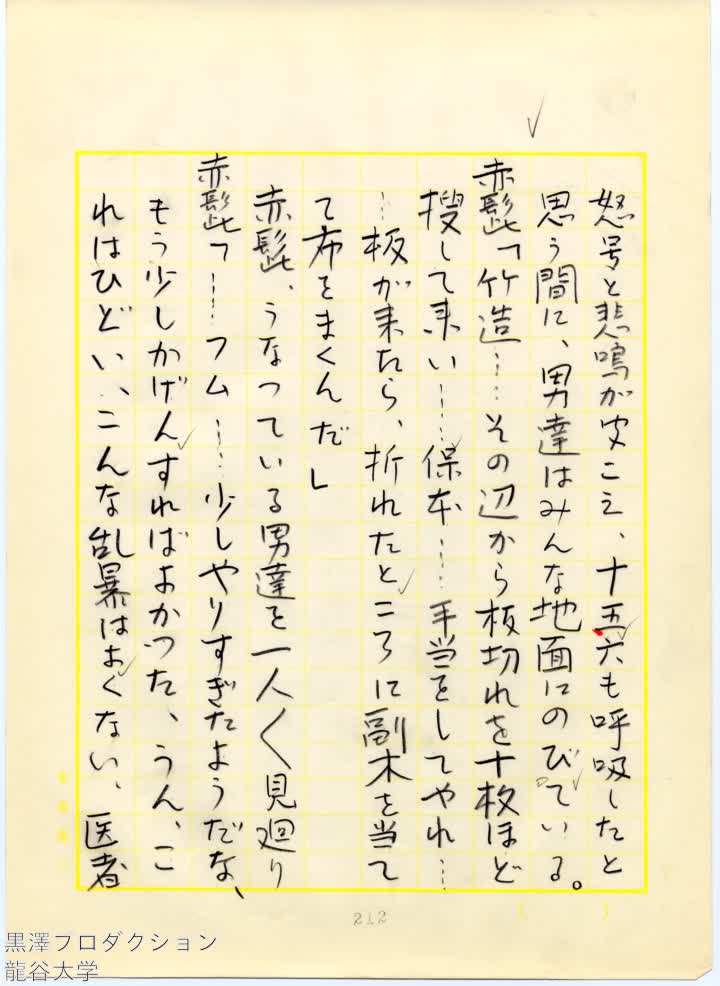 怒号と悲鳴が聞こえ、十五六も呼吸したと
思う間に、男達はみんな地面にのびている。
赤髭「竹造……その辺から板切れを十枚ほど
捜して来い……保本……手当をしてやれ…
…板が来たら、折れたところに副木を当て
て布をまくんだ」
赤髭、うなっている男達を一人〱見廻り
赤髭「……フム……少しやりすぎたようだな、
もう少しかげんすればよかった、うん、こ
れはひどい、こんな乱暴はよくない、医者
212
黒澤プロダクション
龍谷大学